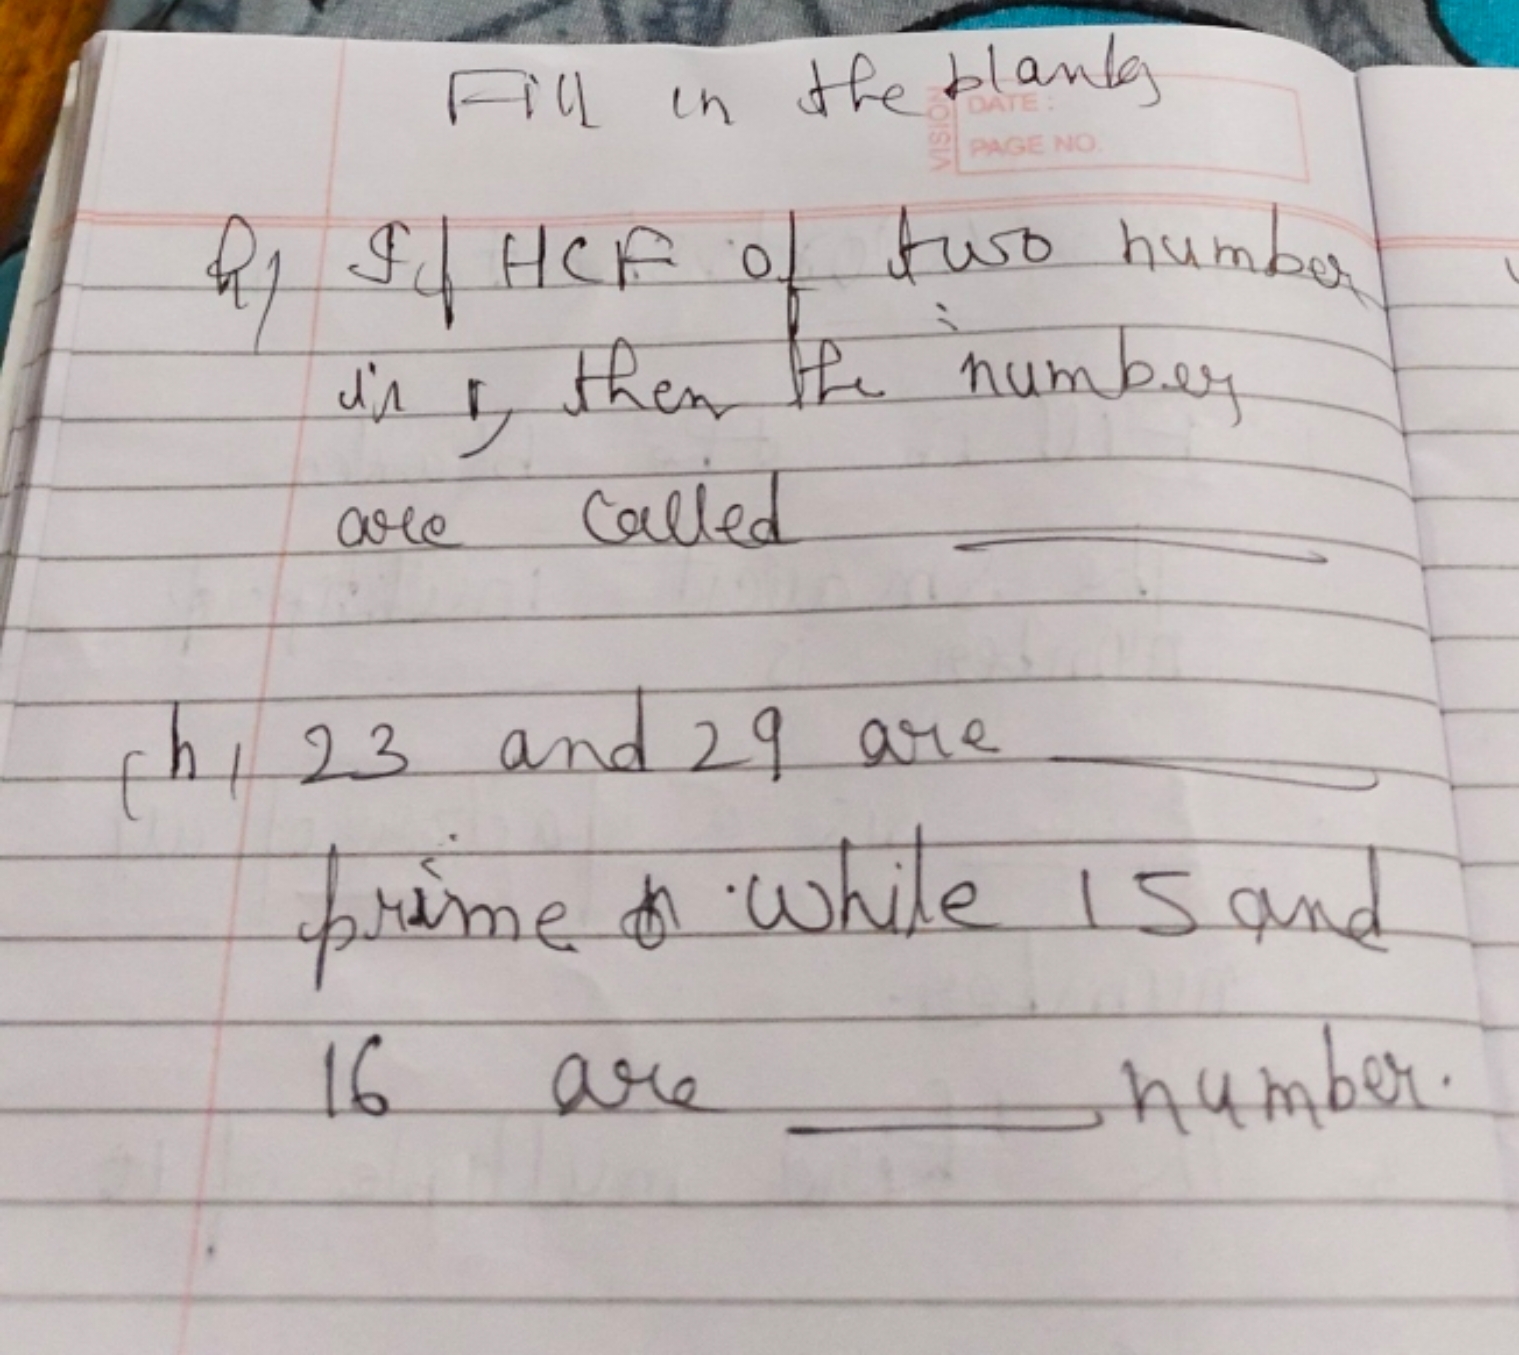 Fill in the blanks
VISION
DATE :
PAGE NO.
Q) If HCF of two number
is 1, then the numbers
are called ______
(h) 23 and 29 are ______
prime while 15 and
16 are ______ number.